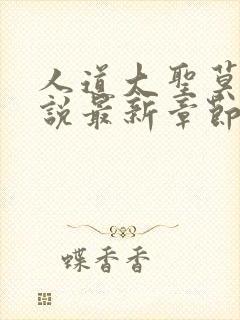 人道大聖莫
說最新章節
蝶香香